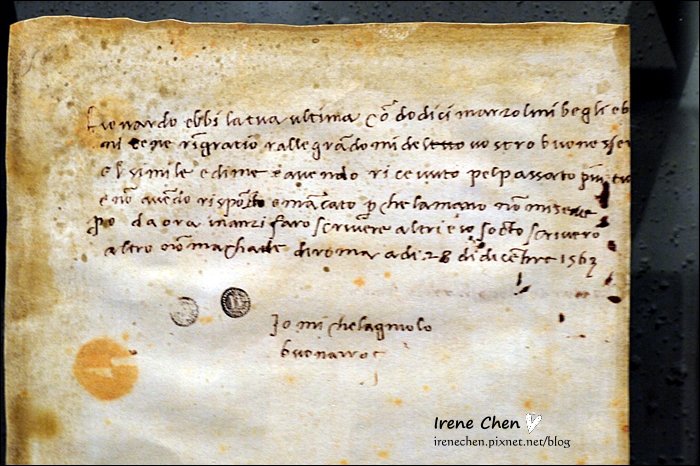 Lionardo ebbi la tua ultima cō dodici marzolini begli e b
mi te ne rīgratio rallegrādomi del vostro buono essere
el simile e di me e avendo ricevuto pel passato più tu
e nō avēdo risposto e māchato p che la mano nō mi serve
po da ora inanzi farò scrivere altri e io socto scriverò
altro nō machade di roma a di 28 di dicēbre 1563
Io michelagniolo
buonarroti
Irene Chen
irenechen.pixnet.net/blog